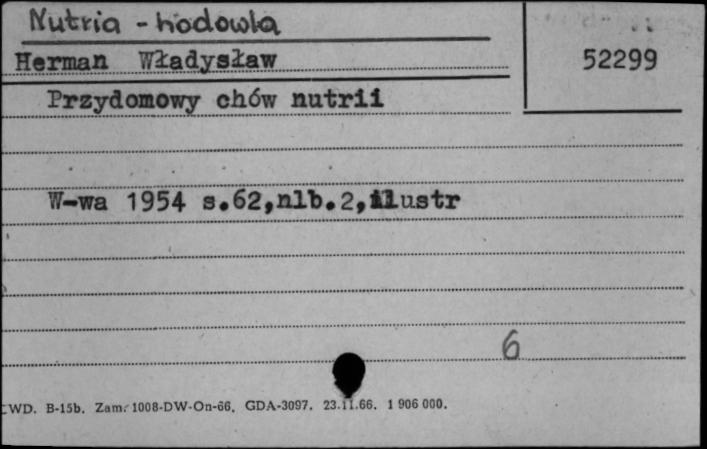 Nutria - hodowla
Herman Władysław
52299
Przydomowy chów nutrii
W-wa 1954 s.62,nlb.2,ilustr
6
CWD. B-15b. Zam. 1008-DW-On-66. GDA-3097. 23.11.66. 1 906 000.